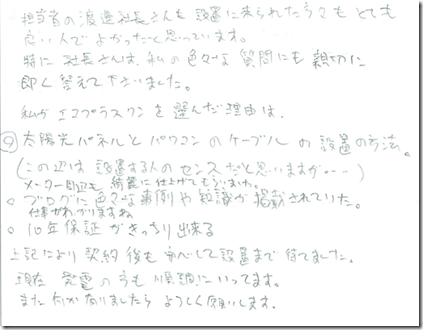 担当者の渡邉社長さんも設置に来られた方々もとても
良い人でよかったと思っています。
特に社長さんは、私の色々な質問にも親切に
即く答えて下さいました。
私がエコプラスワンを選んだ理由は、
◎太陽光パネルとパワコンのケーブルの設置の方法。
(この辺は設置する人のセンスだと思いますが・・・)
メーター周辺も綺麗に仕上げてもらいました。
○ブログに色々な事例や知識が掲載されていた。
仕事がわかりますね
○10年保証がきっちり出来る
上記により契約後も安心して設置まで待てました。
現在発電の方も順調にいってます。
また何かありましたらよろしく願いします。